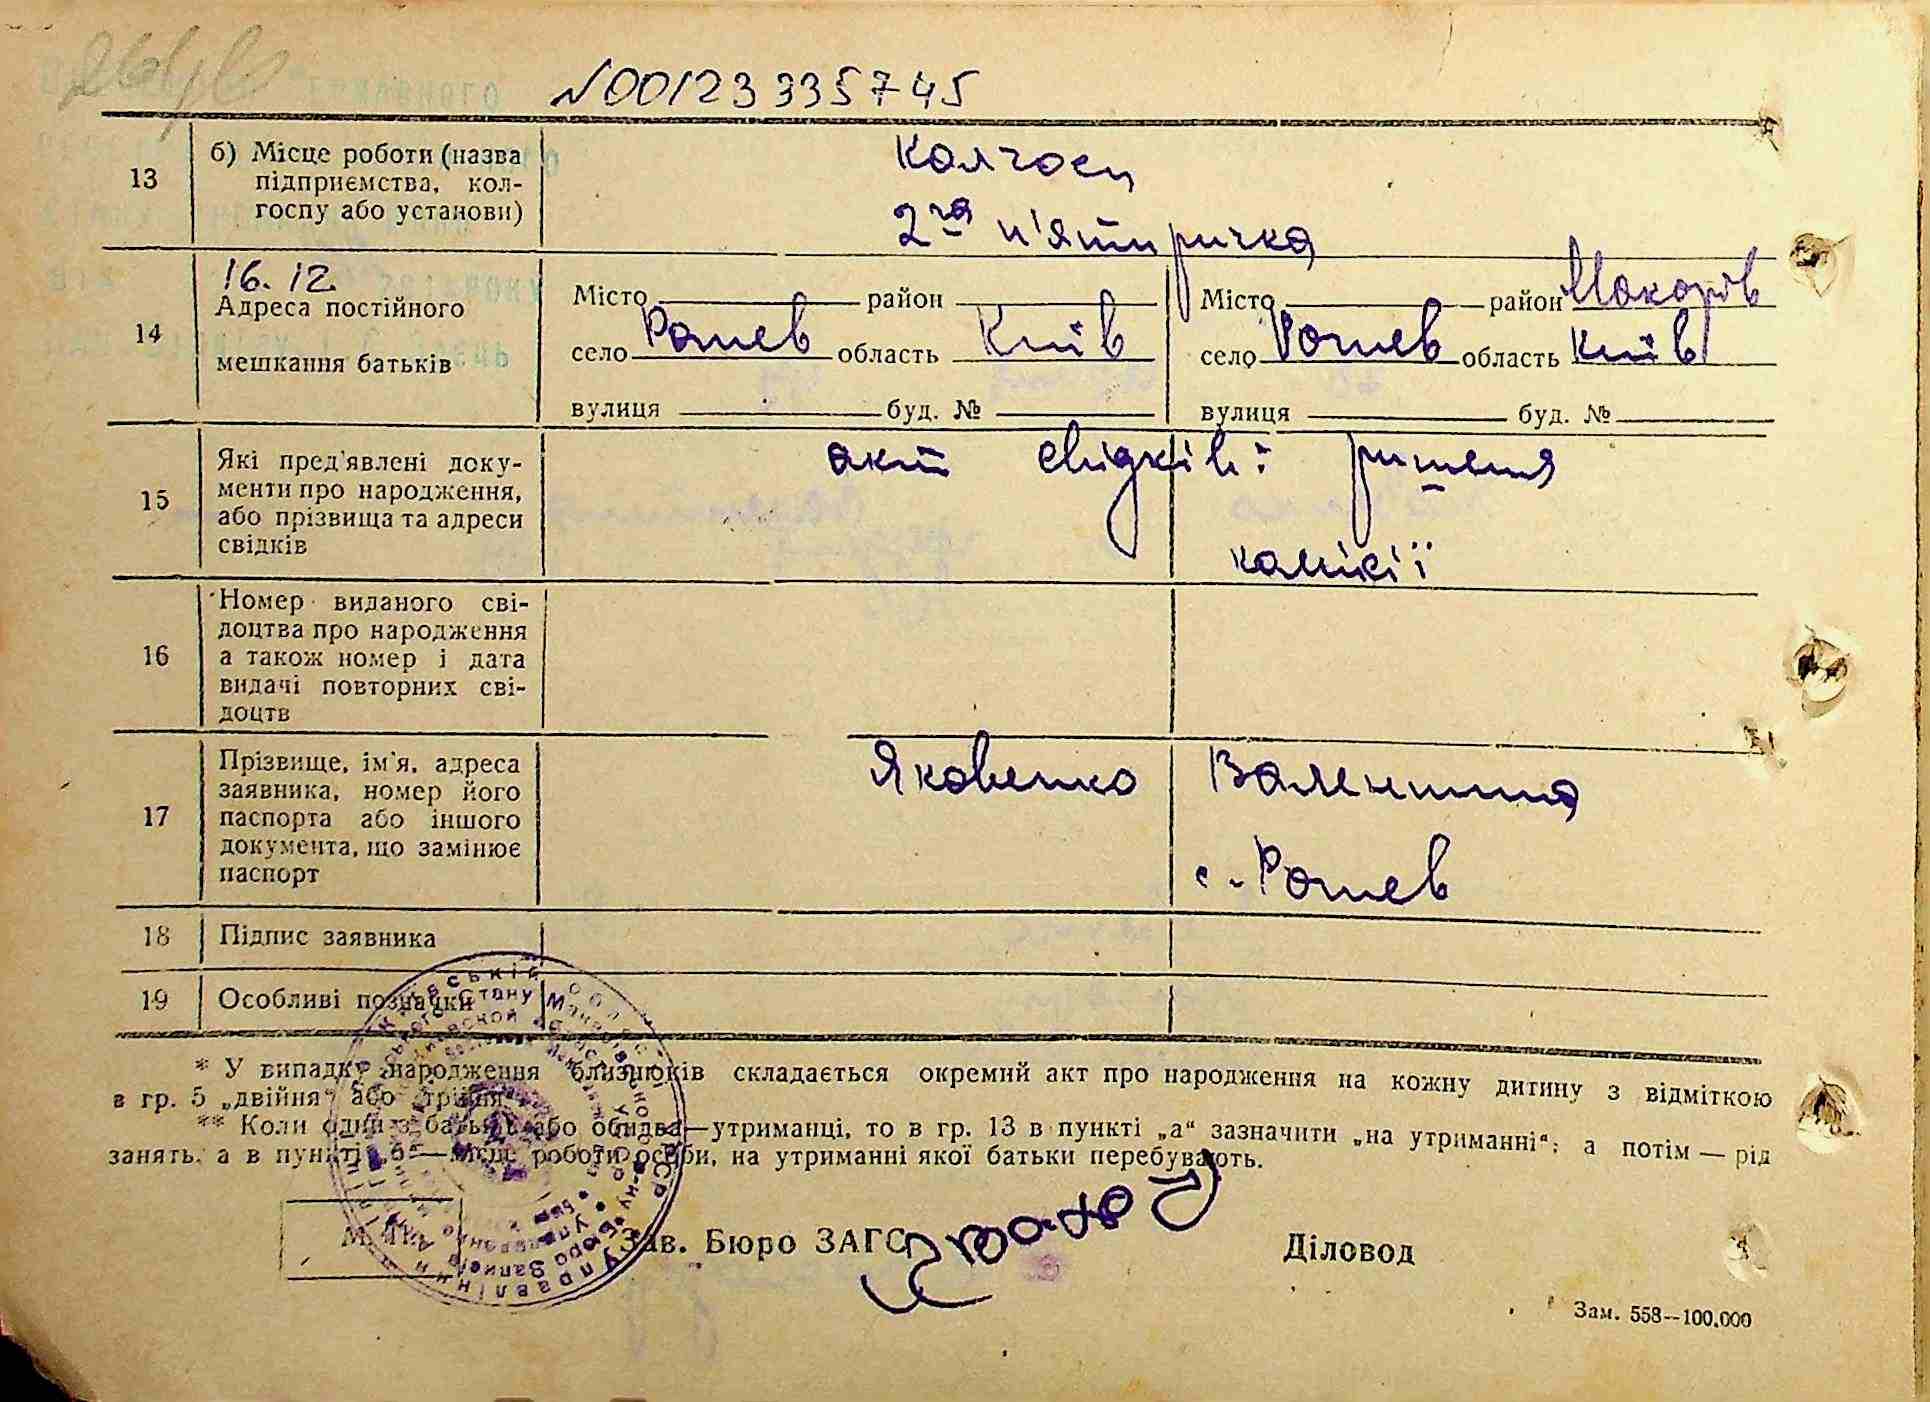 N00123335745
13 б) Місце роботи (назва підприємства, кол-
госпу або установи)
Колгосп
2га п'ятирічка
16.12.
14 Адреса постійного
мешкання батьків
Місто район Місто район Макарів
село Рожев область Київ село Рожев область Київ
вулиця буд. № вулиця буд. №
15 Які пред'явлені доку-
менти про народження,
або прізвища та адреси
свідків
акт свідків і рішення
комісії
16 Номер виданого сві-
доцтва про народження
а також номер і дата
видачі повторних сві-
доцтв
17 Прізвище, ім'я, адреса
заявника, номер його
паспорта або іншого
документа, що замінює
паспорт
Яковенко Валентина
с. Рожев
18 Підпис заявника
19 Особливі позначки
* У випадку народження близнюків складається окремий акт про народження на кожну дитину з відміткою
в гр. 5 „двійня“ або „трійня“.
** Коли один з батьків або обидва—утриманці, то в гр. 13 в пункті „а“ зазначити „на утриманні“; а потім — рід
занять, а в пункті „б“ — місце роботи особи, на утриманні якої батьки перебувають.
М. П. Зав. Бюро ЗАГС Діловод
Зам. 558—100.000